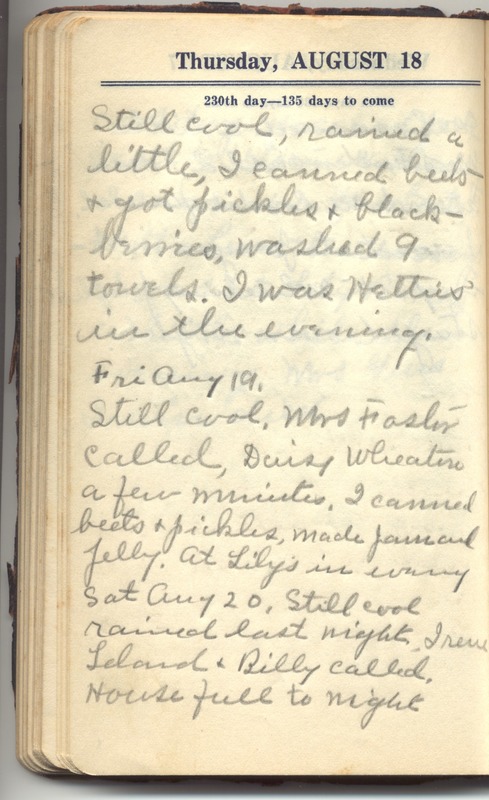 Thursday, AUGUST 18
230th day—135 days to come
Still cool, rained a
little, I canned beets
& got pickles & black-
berries, washed 9
towels. I was Hetties
in the evening.
Fri Aug 19.
Still cool. Mrs Foster
called, Daisy Wheaton
a few minutes. I canned
beets & pickles, made jam and
jelly. At Lilys in eveny
Sat Aug 20. Still cool
rained last night. Irene
Leland & Billy called.
House full to night